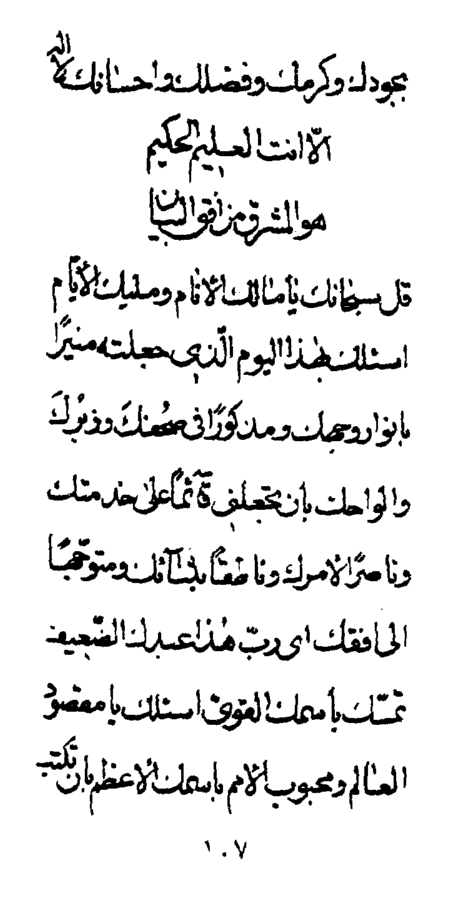 بجودك وكرمك وفضلك واحسانك لا اله
الّا انت العليم الحكيم
هو المشرق من افق البيان
قل سبحانك يا مالك الانام ومليك الأيّام
اسئلك بهذا اليوم الّذى جعلته منيرًا
بانوار وجهك ومذكورًا فى صحفك وزبرك
والواحك بأن تجعلنى قآئمًا على خدمتك
وناصرًا لامرك وناطقًا بثنآئك ومتوجّهًا
الى افقك اى ربّ هذا عبدك الضّعيف
تمسّك بأسمك القوىّ اسئلك يا مقصود
العالم ومحبوب الامم باسمك الاعظم بان تكتب
١٠٧